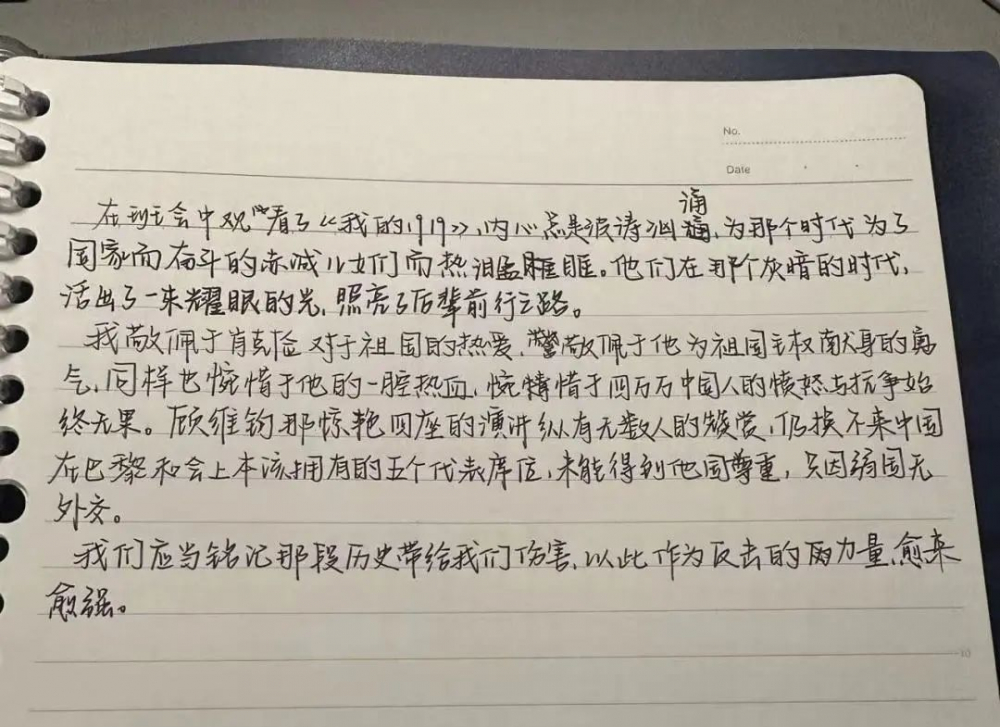 No.
Date
涌
在班会中观看了《我的1919》,内心总是波涛汹涌,为那个时代为了
国家而奋斗的赤诚儿女们而热泪盈眶。他们在那个灰暗的时代,
活出了一束耀眼的光,照亮了后辈前行之路。
我敬佩于肖克俭对于祖国的热爱,敬佩于他为祖国主权献身的勇
气,同样也惋惜于他的一腔热血,惋惜于四万万中国人的愤怒与抗争始
终无果。顾维钧那惊艳四座的演讲纵有无数人的赞赏,仍换不来中国
在巴黎和会上本该拥有的五个代表席位,未能得到他国尊重,只因弱国无
外交。
我们应当铭记那段历史带给我们伤害,以此作为反击的力量,愈来
愈强。